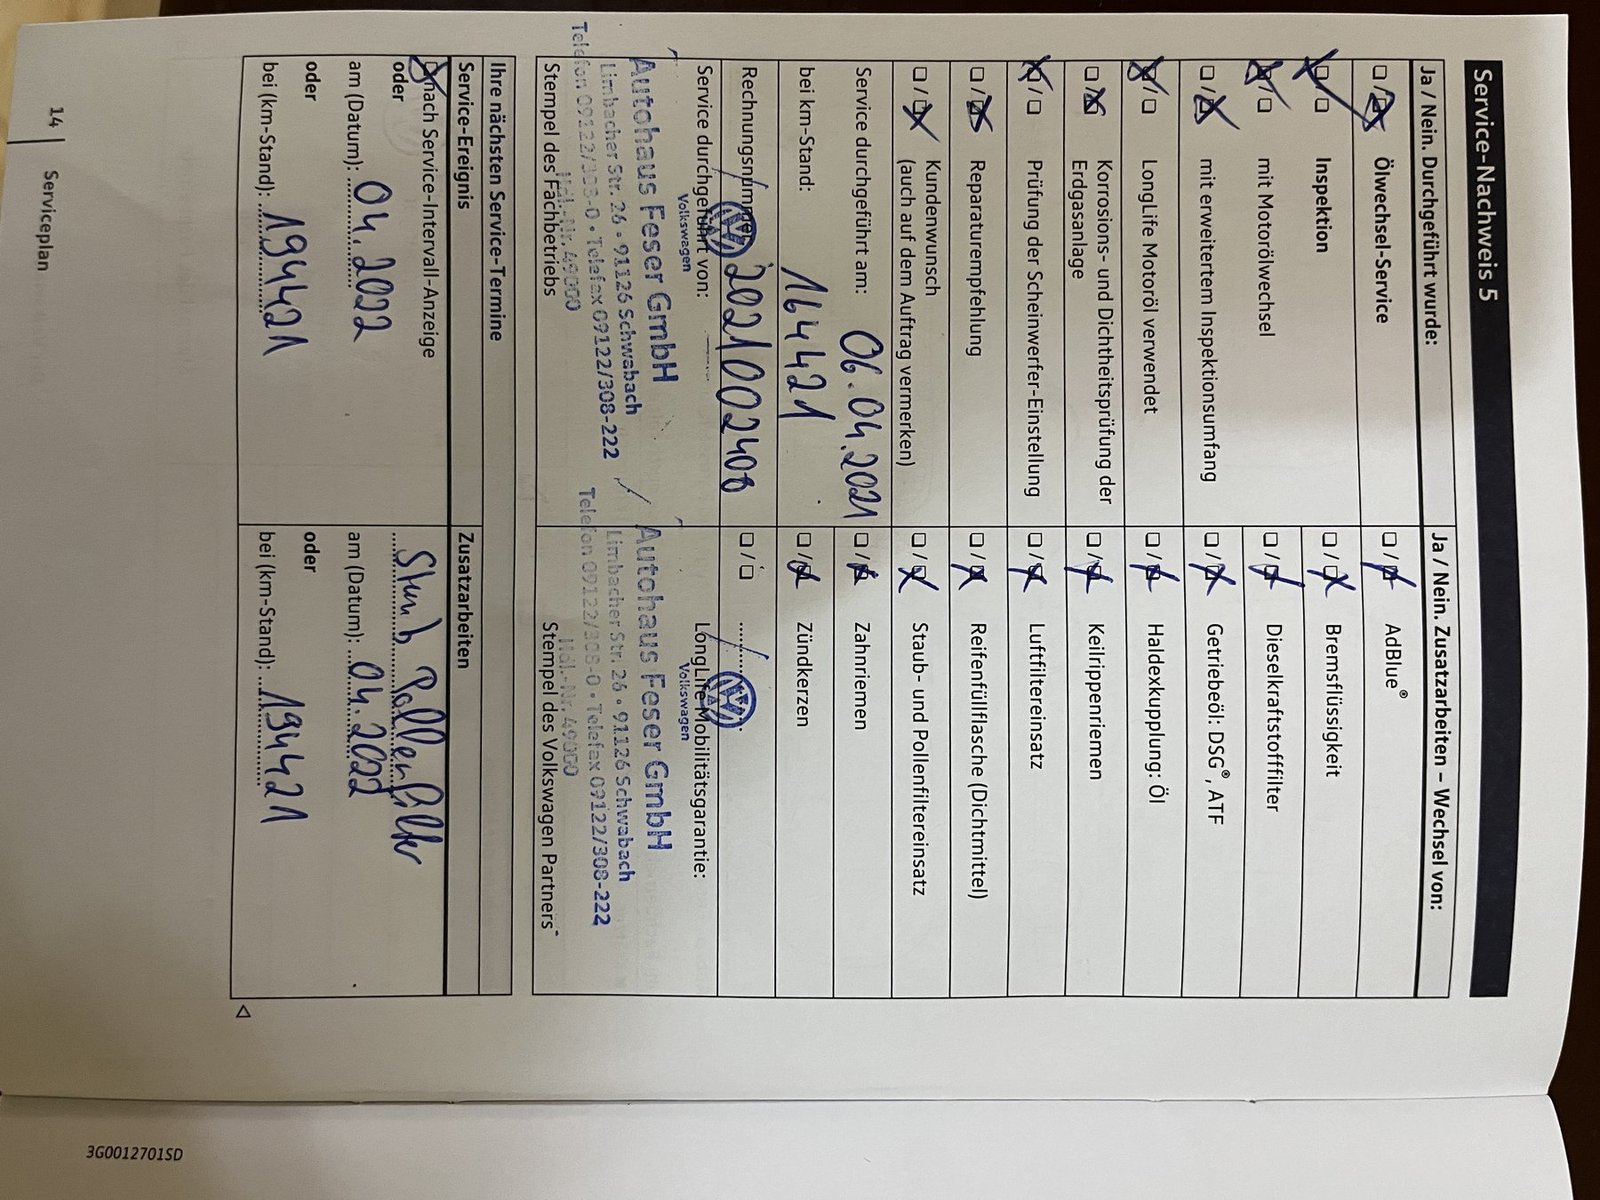 Service-Nachweis 5
Ja / Nein. Durchgeführt wurde:
Ölwechsel-Service
Inspektion
mit Motorölwechsel
mit erweitertem Inspektionsumfang
LongLife Motoröl verwendet
Korrosions- und Dichtheitsprüfung der
Erdgasanlage
Prüfung der Scheinwerfer-Einstellung
Reparaturempfehlung
Kundenwunsch
(auch auf dem Auftrag vermerken)
Service durchgeführt am: 06.04.2021
bei km-Stand: 164421
Rechnungsnummer: 2021002408
Service durchgeführt von:
Volkswagen
Autohaus Feser GmbH
Limbacher Str. 26 • 91126 Schwabach
Telefon 09122/308-0 • Telefax 09122/308-222
Hdl.-Nr. 49000
Stempel des Fachbetriebs
Ja / Nein. Zusatzarbeiten – Wechsel von:
AdBlue®
Bremsflüssigkeit
Dieselkraftstofffilter
Getriebeöl: DSG®, ATF
Haldexkupplung: Öl
Keilrippenriemen
Luftfiltereinsatz
Reifenfüllflasche (Dichtmittel)
Staub- und Pollenfiltereinsatz
Zahnriemen
Zündkerzen
LongLife-Mobilitätsgarantie:
Volkswagen
Autohaus Feser GmbH
Limbacher Str. 26 • 91126 Schwabach
Telefon 09122/308-0 • Telefax 09122/308-222
Hdl.-Nr. 49000
Stempel des Volkswagen Partners
Ihre nächsten Service-Termine
Service-Ereignis
nach Service-Intervall-Anzeige
oder
am (Datum): 04.2022
oder
bei (km-Stand): 194421
Zusatzarbeiten
Staub Pollenfilter
am (Datum): 04.2022
oder
bei (km-Stand): 194421
14 Serviceplan
3G0012701SD